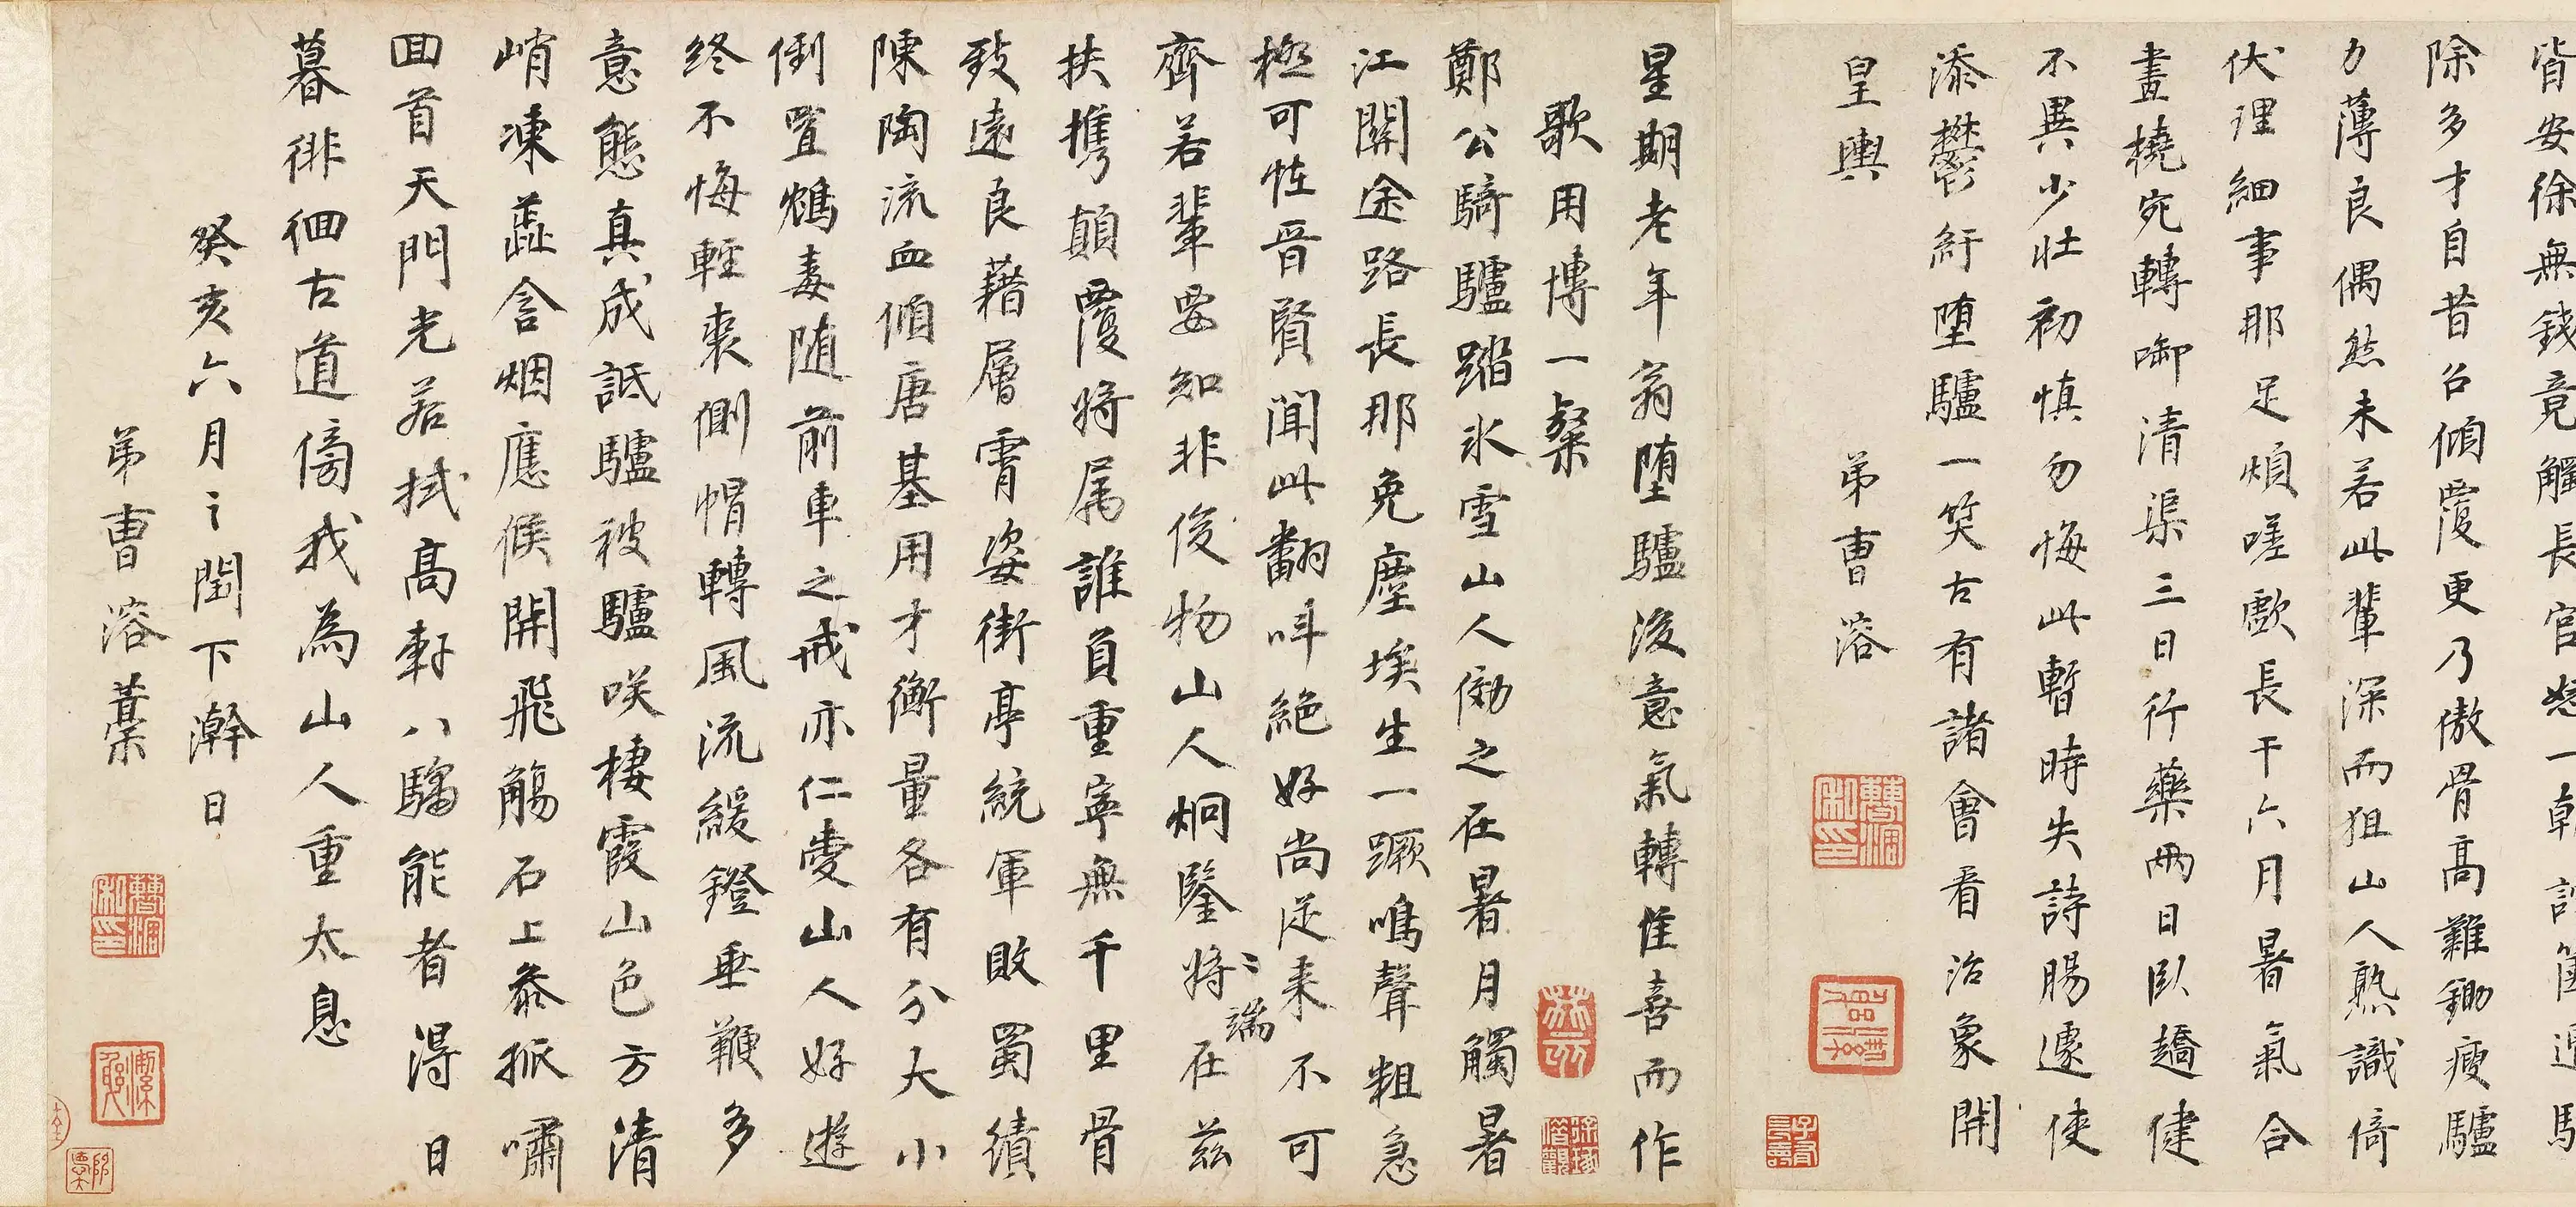 皆安徐無錢竟觸長官怒一朝
除多才自昔召傾覆更乃傲骨高難鋤瘦驢
力薄良偶然未若此輩深而狙山人熟識倚
伏理細事那足煩嗟歔長干六月暑氣合
畫橈宛轉御清渠三日行藥兩日臥趫健
不異少壯初慎勿悔此暫時失詩腸遽使
添鬱紆堕驢一笑古有諸會看治象開
皇輿
弟曹溶
星期老年翁堕驢後意氣轉佳喜而作
歌用博一粲
鄭公騎驢踏氷雪山人効之在暑月觸暑
江關途路長那免塵埃生一蹶鳴聲粗急
極可怪晉賢聞此翻呌絕好尚從来不可
齊若輩要知非俊物山人炯鑒將〻在茲
端
扶携顛覆將属誰負重寧無千里骨
致遠良藉層霄姿街亭統軍敗蜀績
陳陶流血傾唐基用才衡量各有分大小
倒置鴆毒随前車之戒亦仁愛山人好遊
終不悔輕裘側帽轉風流緩鐙垂鞭多
意態真成詆驢被驢咲棲霞山色方清
峭凍蕋含烟應候開飛觴石上叅孤嘯
回首天門光若拭高軒八騶能者得日
暮徘徊古道傍我為山人重太息
癸亥六月之閏下澣日
弟曹溶藁